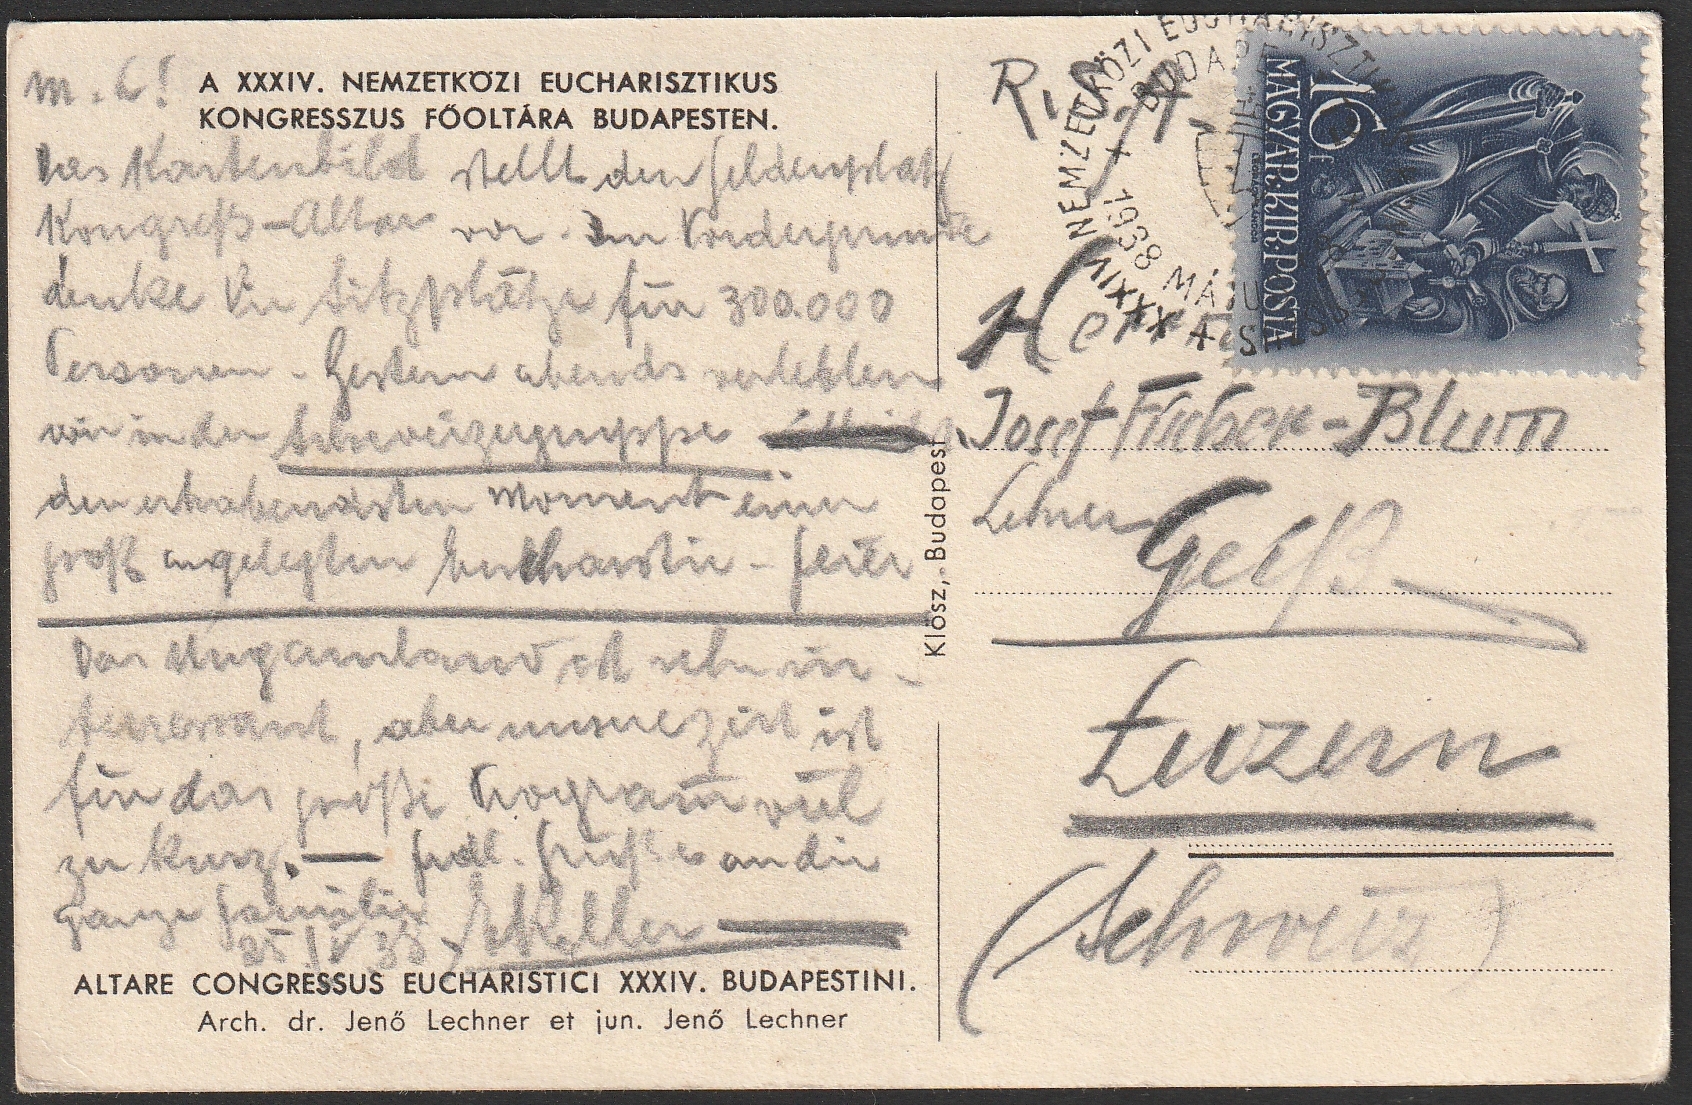 m. L!
A XXXIV. NEMZETKÖZI EUCHARISZTIKUS
KONGRESSZUS FŐOLTÁRA BUDAPESTEN.
Das Kartenbild stellt den Heldenplatz
Kongreß-Altar vor. Im Vordergrunde
denke Dir Sitzplätze für 300.000
Personen. Gestern abends erlebten
wir in der Schweizergruppe
den erhabendsten Moment einer
groß angelegten Eucharistie-feier.
Das Ungarnland ist sehr in-
teressant, aber unsre Zeit ist
für das große Program viel
zu kurz. — frdl. Grüße an die
ganze Familie
Keller
ALTARE CONGRESSUS EUCHARISTICI XXXIV. BUDAPESTINI.
Arch. dr. Jenő Lechner et jun. Jenő Lechner
Klösz, Budapest
XXXIV NEMZETKÖZI EUCHARISZTIKUS
BUDAPEST
1938 MÁJUS
16 f
MAGYAR·KIR·POSTA
Herrn
Josef -Blum
Lehrer
Luzern
(Schweiz)